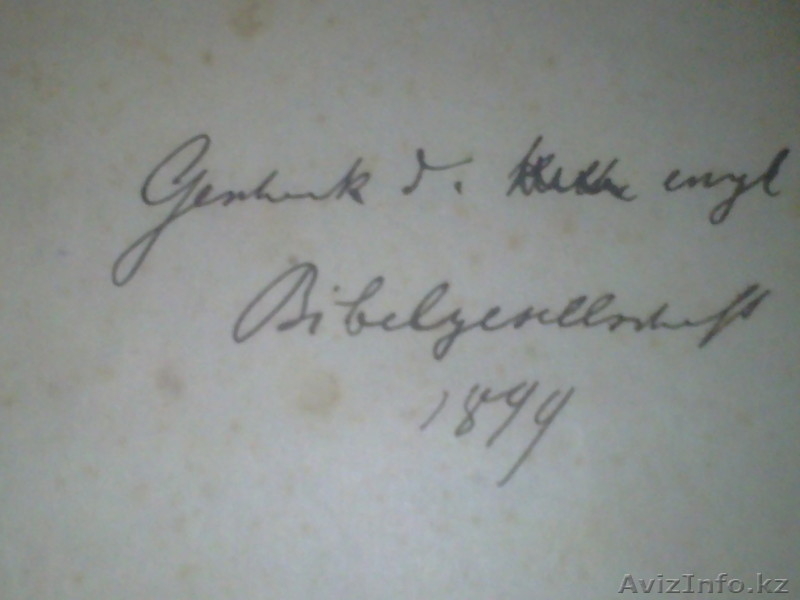 Geschenk d. engl
Bibelgesellschaft
1899
AvizInfo.kz